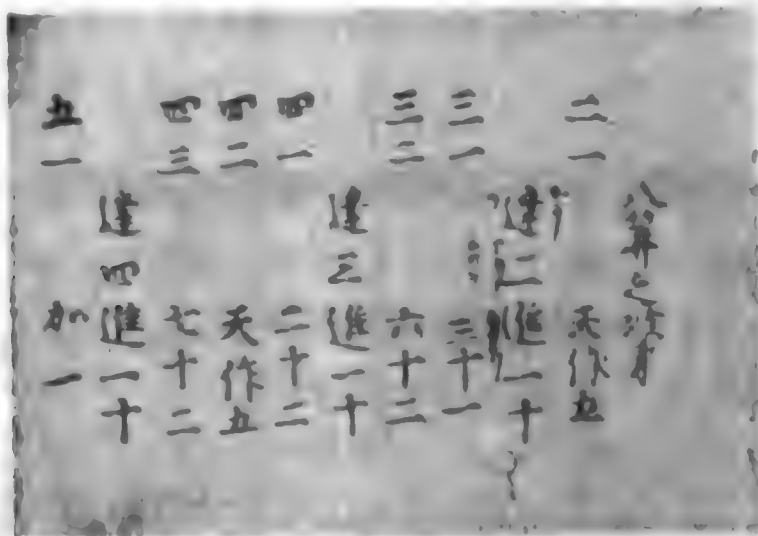 八算之
二一 天作五
逢二進一十
三一 三十一
三二 六十二
逢三進一十
四一 二十二
四二 天作五
四三 七十二
逢四進一十
五一 加一